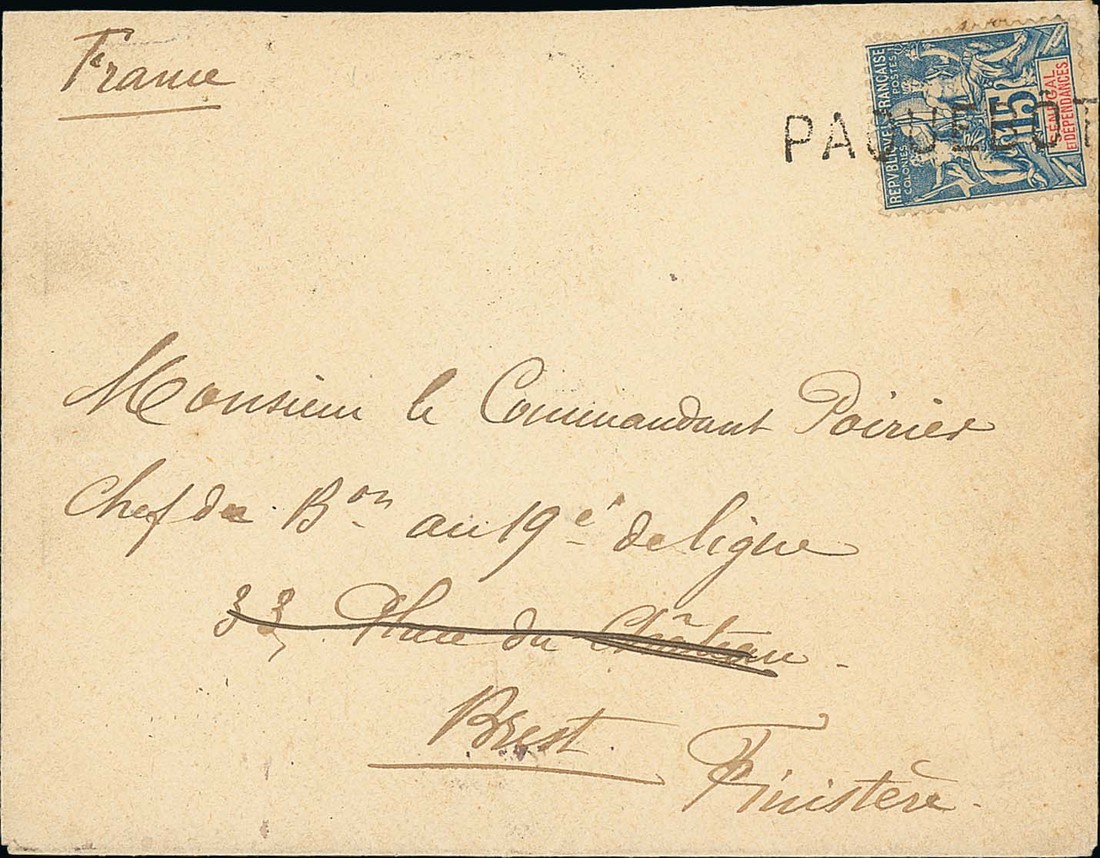 France
REPVBLIQVE FRANÇAISE
COLONIES POSTES
15
SENEGAL
ET DÉPENDANCES
PAQUEBOT
Monsieur le Commandant Poirier
Chef de Bon au 19e de ligne
33, Place du Château
Brest
Finistère